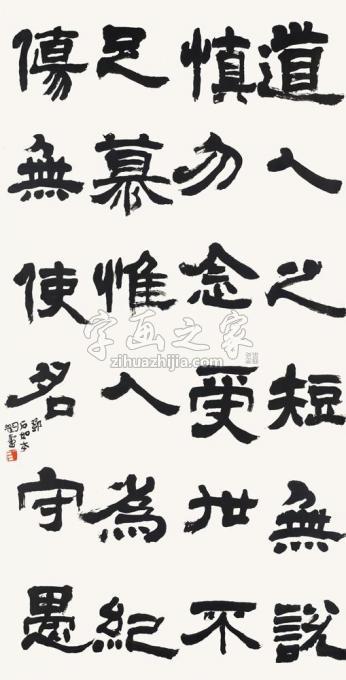 道人之短無説
慎勿念受世不
足慕惟人為紀
傷無使名守愚
字画之家
zihuazhijia.com